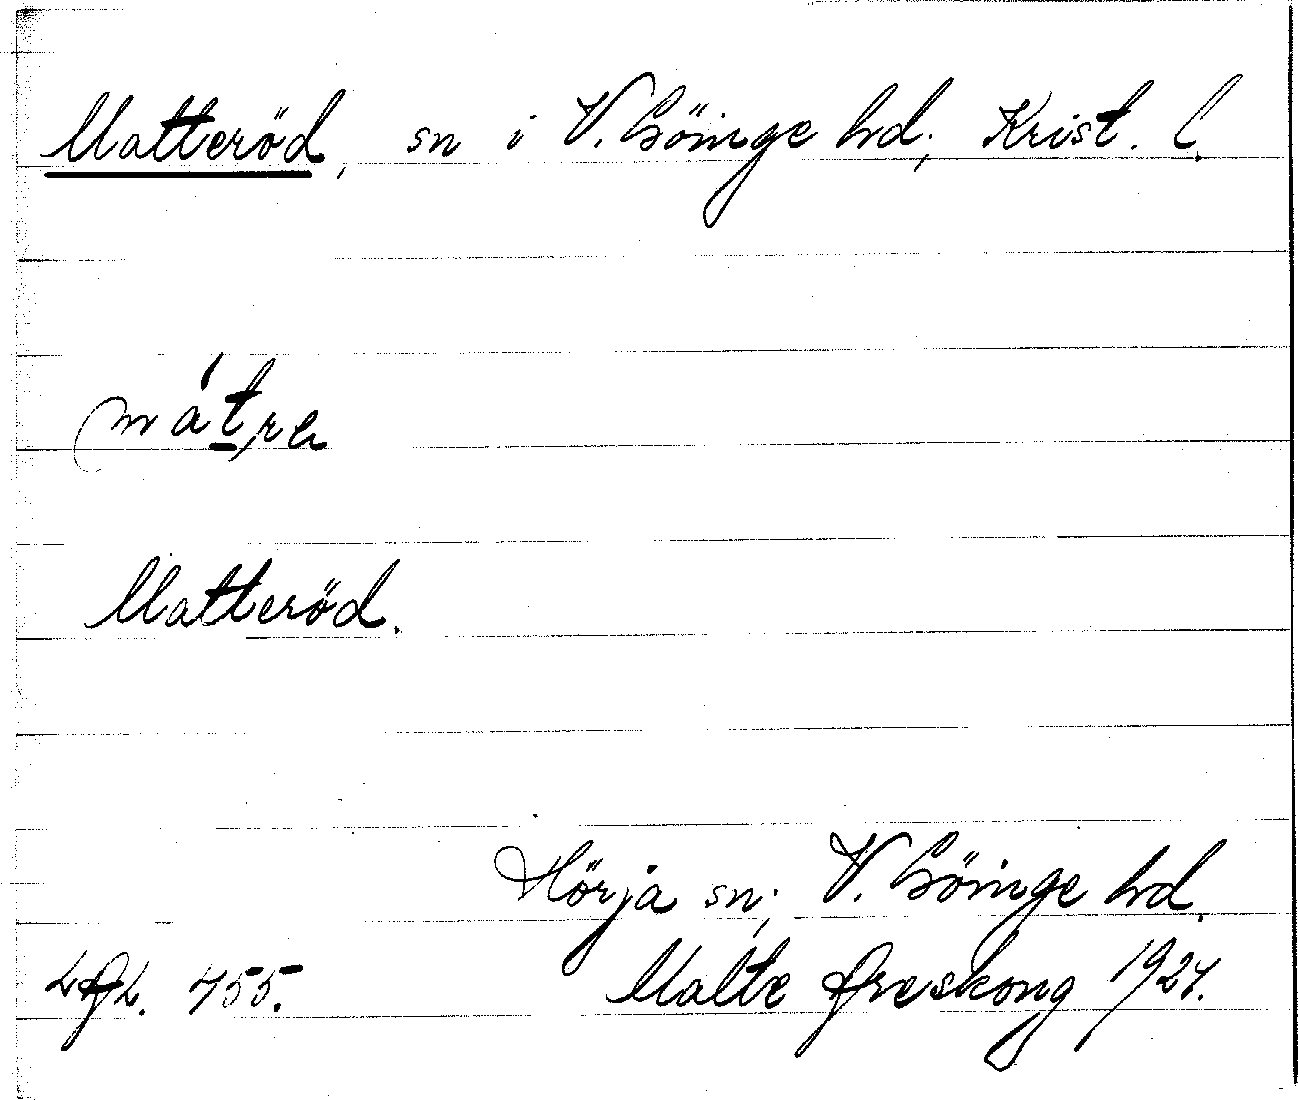 Matteröd, sn i V. Göinge hd, Krist. l.
mátra
Matteröd.
Hörja sn, V. Göinge hd.
Malte Areskoug 1924.